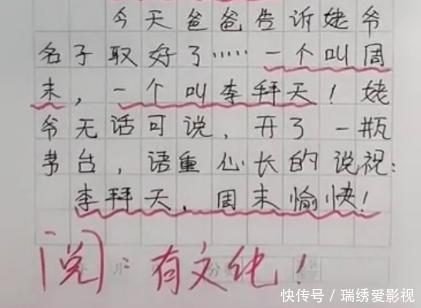 今天爸爸告诉姥爷
名子取好了……一个叫周
末，一个叫李拜天！姥
爷无话可说，开了一瓶
茅台，语重心长的说祝：
李拜天，周末愉快！
阅：有文化！
快传号/瑞绣爱影视